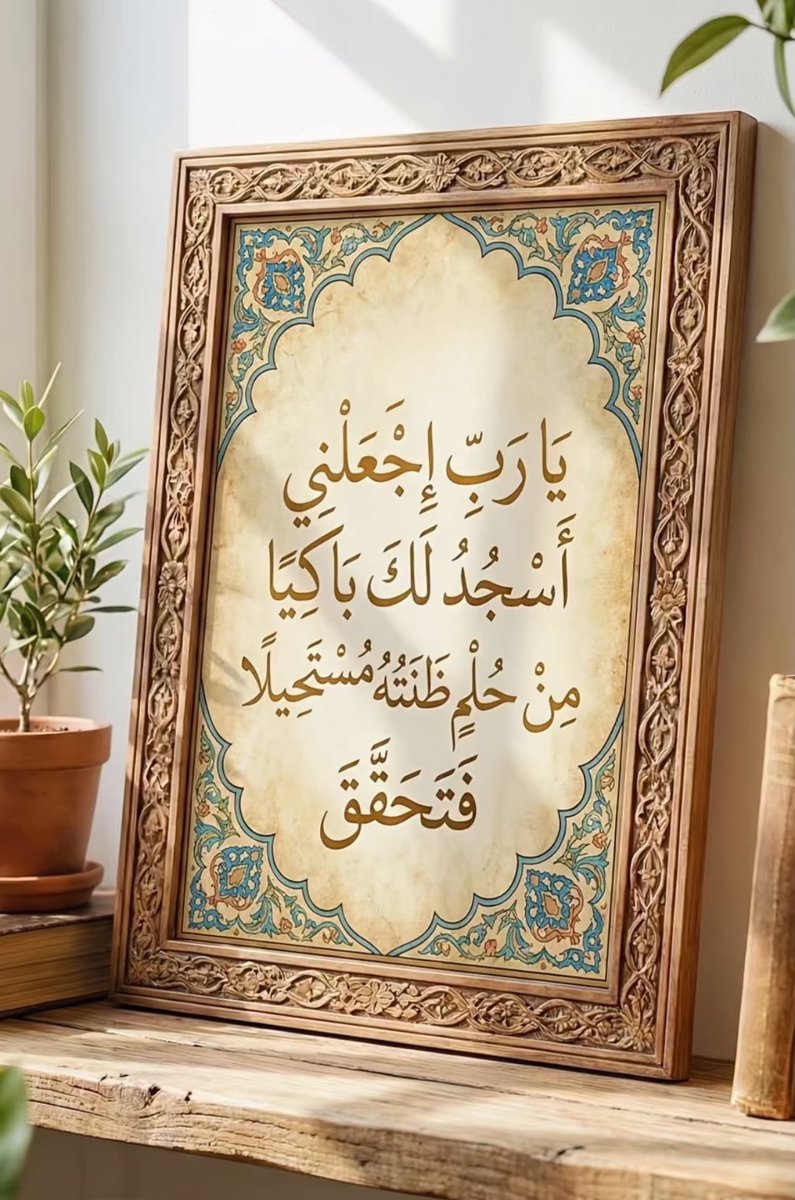 يَا رَبِّ إِجْعَلْنِي
أَسْجُدُ لَكَ بَاكِيًا
مِنْ حُلْمٍ ظَنَنتُهُ مُسْتَحِيلًا
فَتَحَقَّقَ